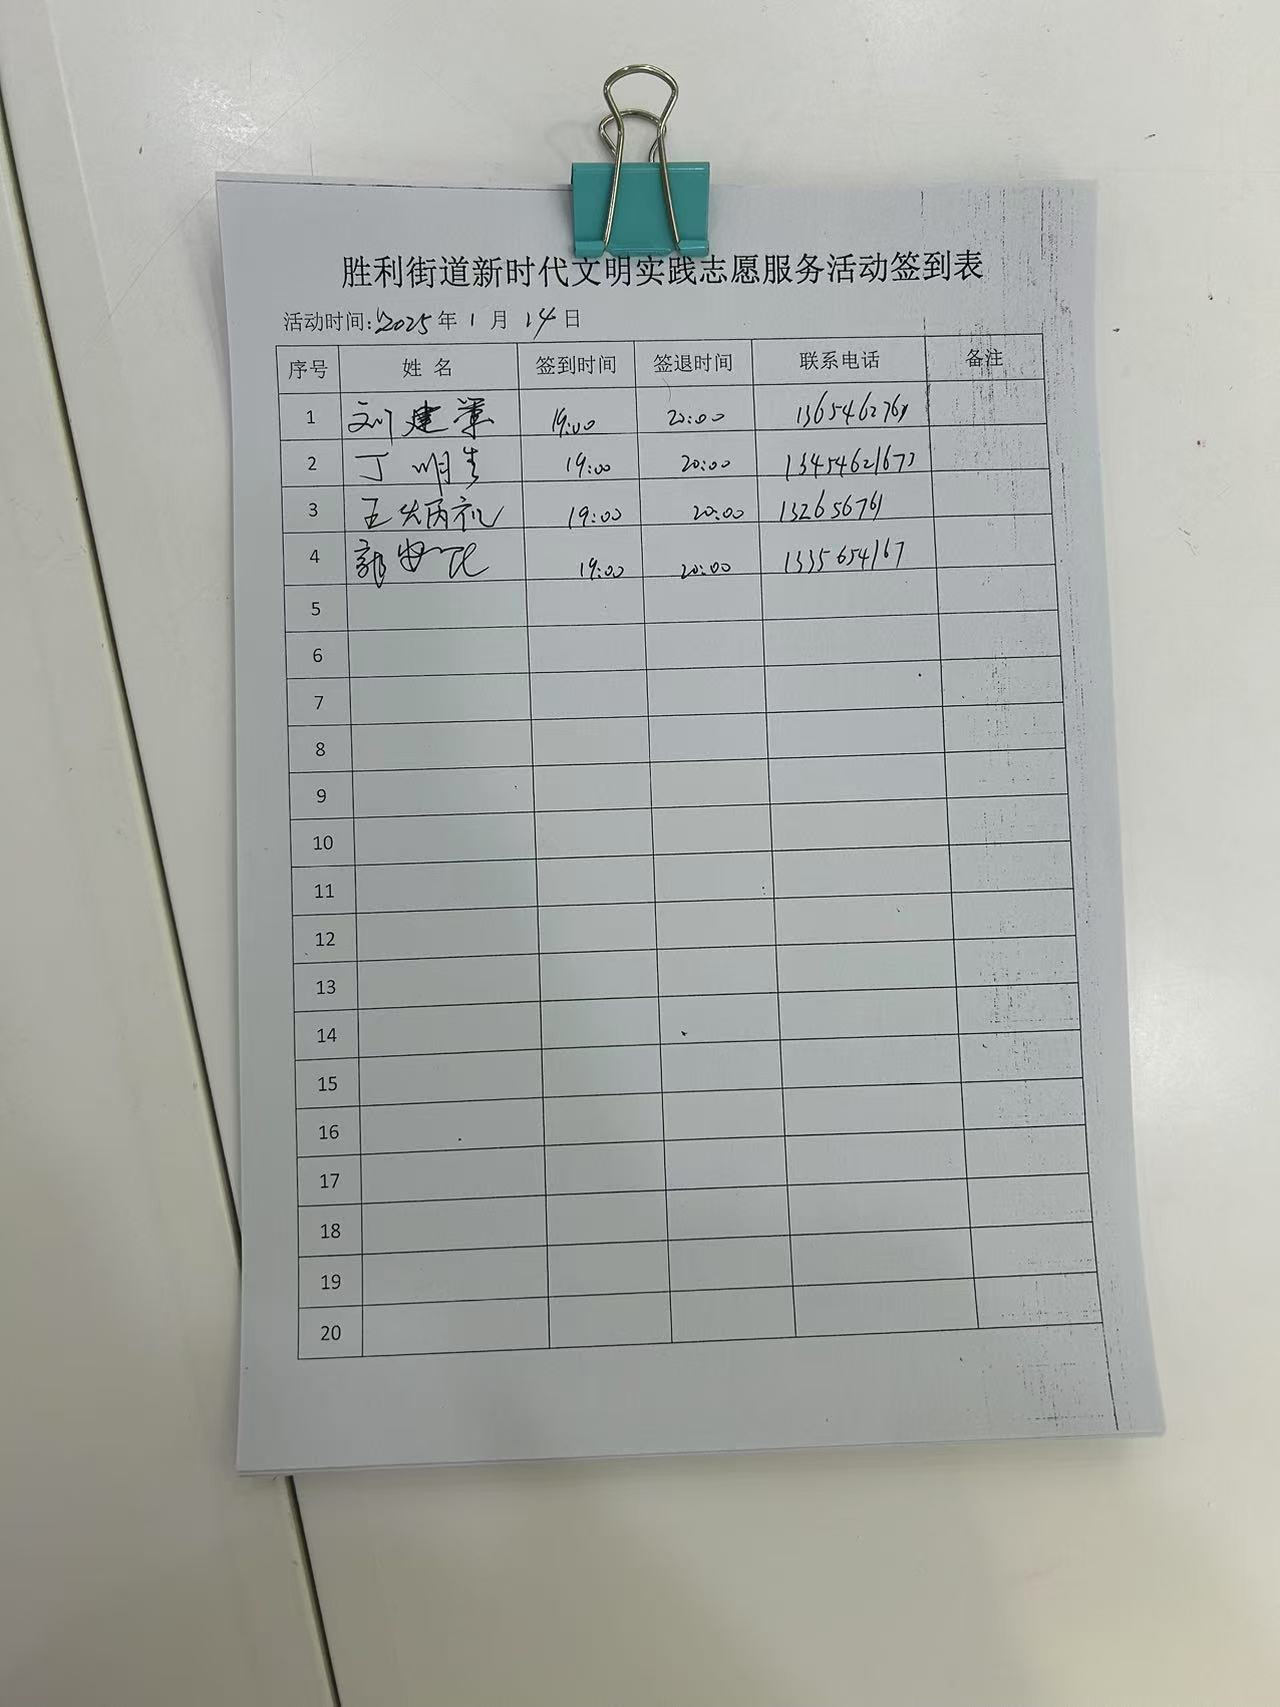 胜利街道新时代文明实践志愿服务活动签到表
活动时间:2025年1月14日
序号 姓名 签到时间 签退时间 联系电话 备注
1 刘建军 19:00 20:00
2 丁明 19:00 20:00 13454621673
3 王炳礼 19:00 20:00 132656761
4 郭 19:00 20:00 1335654167
5
6
7
8
9
10
11
12
13
14
15
16
17
18
19
20